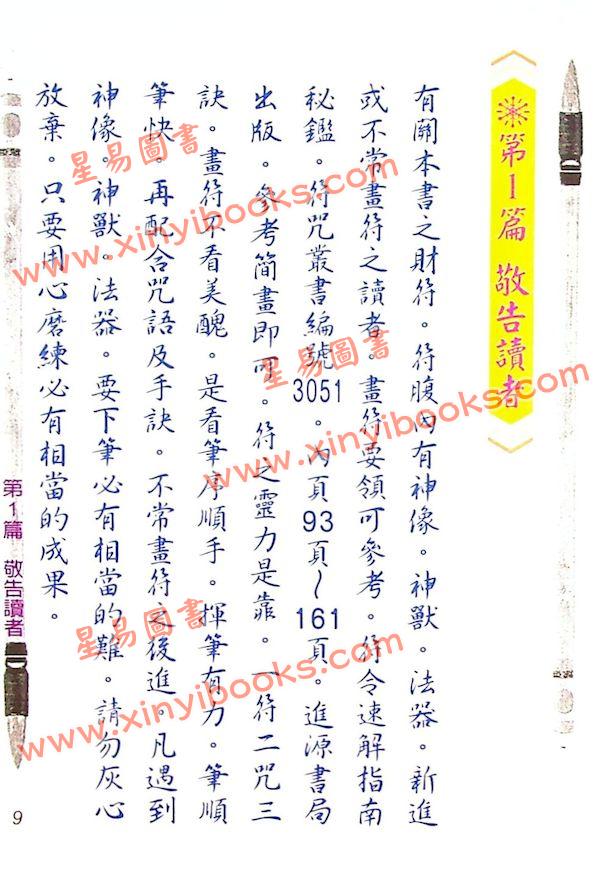 第1篇 敬告讀者
有關本書之財符。符腹內有神像。神獸。法器。新進
或不常畫符之讀者。畫符要領可參考。符令速解指南
秘鑑。符咒叢書編號3051。內頁93頁~161頁。進源書局
出版。參考簡畫即可。符之靈力是靠。一符二咒三
訣。畫符不看美醜。是看筆序順手。揮筆有力。筆順
筆快。再配合咒語及手訣。不常畫符之後進。凡遇到
神像。神獸。法器。要下筆必有相當的難。請勿灰心
放棄。只要用心磨練必有相當的成果。
第1篇 敬告讀者
9
星易圖書
www.xinyibooks.com
星易圖書
www.xinyibooks.com
星易圖書
www.xinyibooks.com